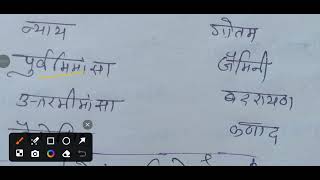 न्याय गोतम
पुर्वमिमांसा जैमिनी
उत्तरमीमांसा बदरायण
कणाद